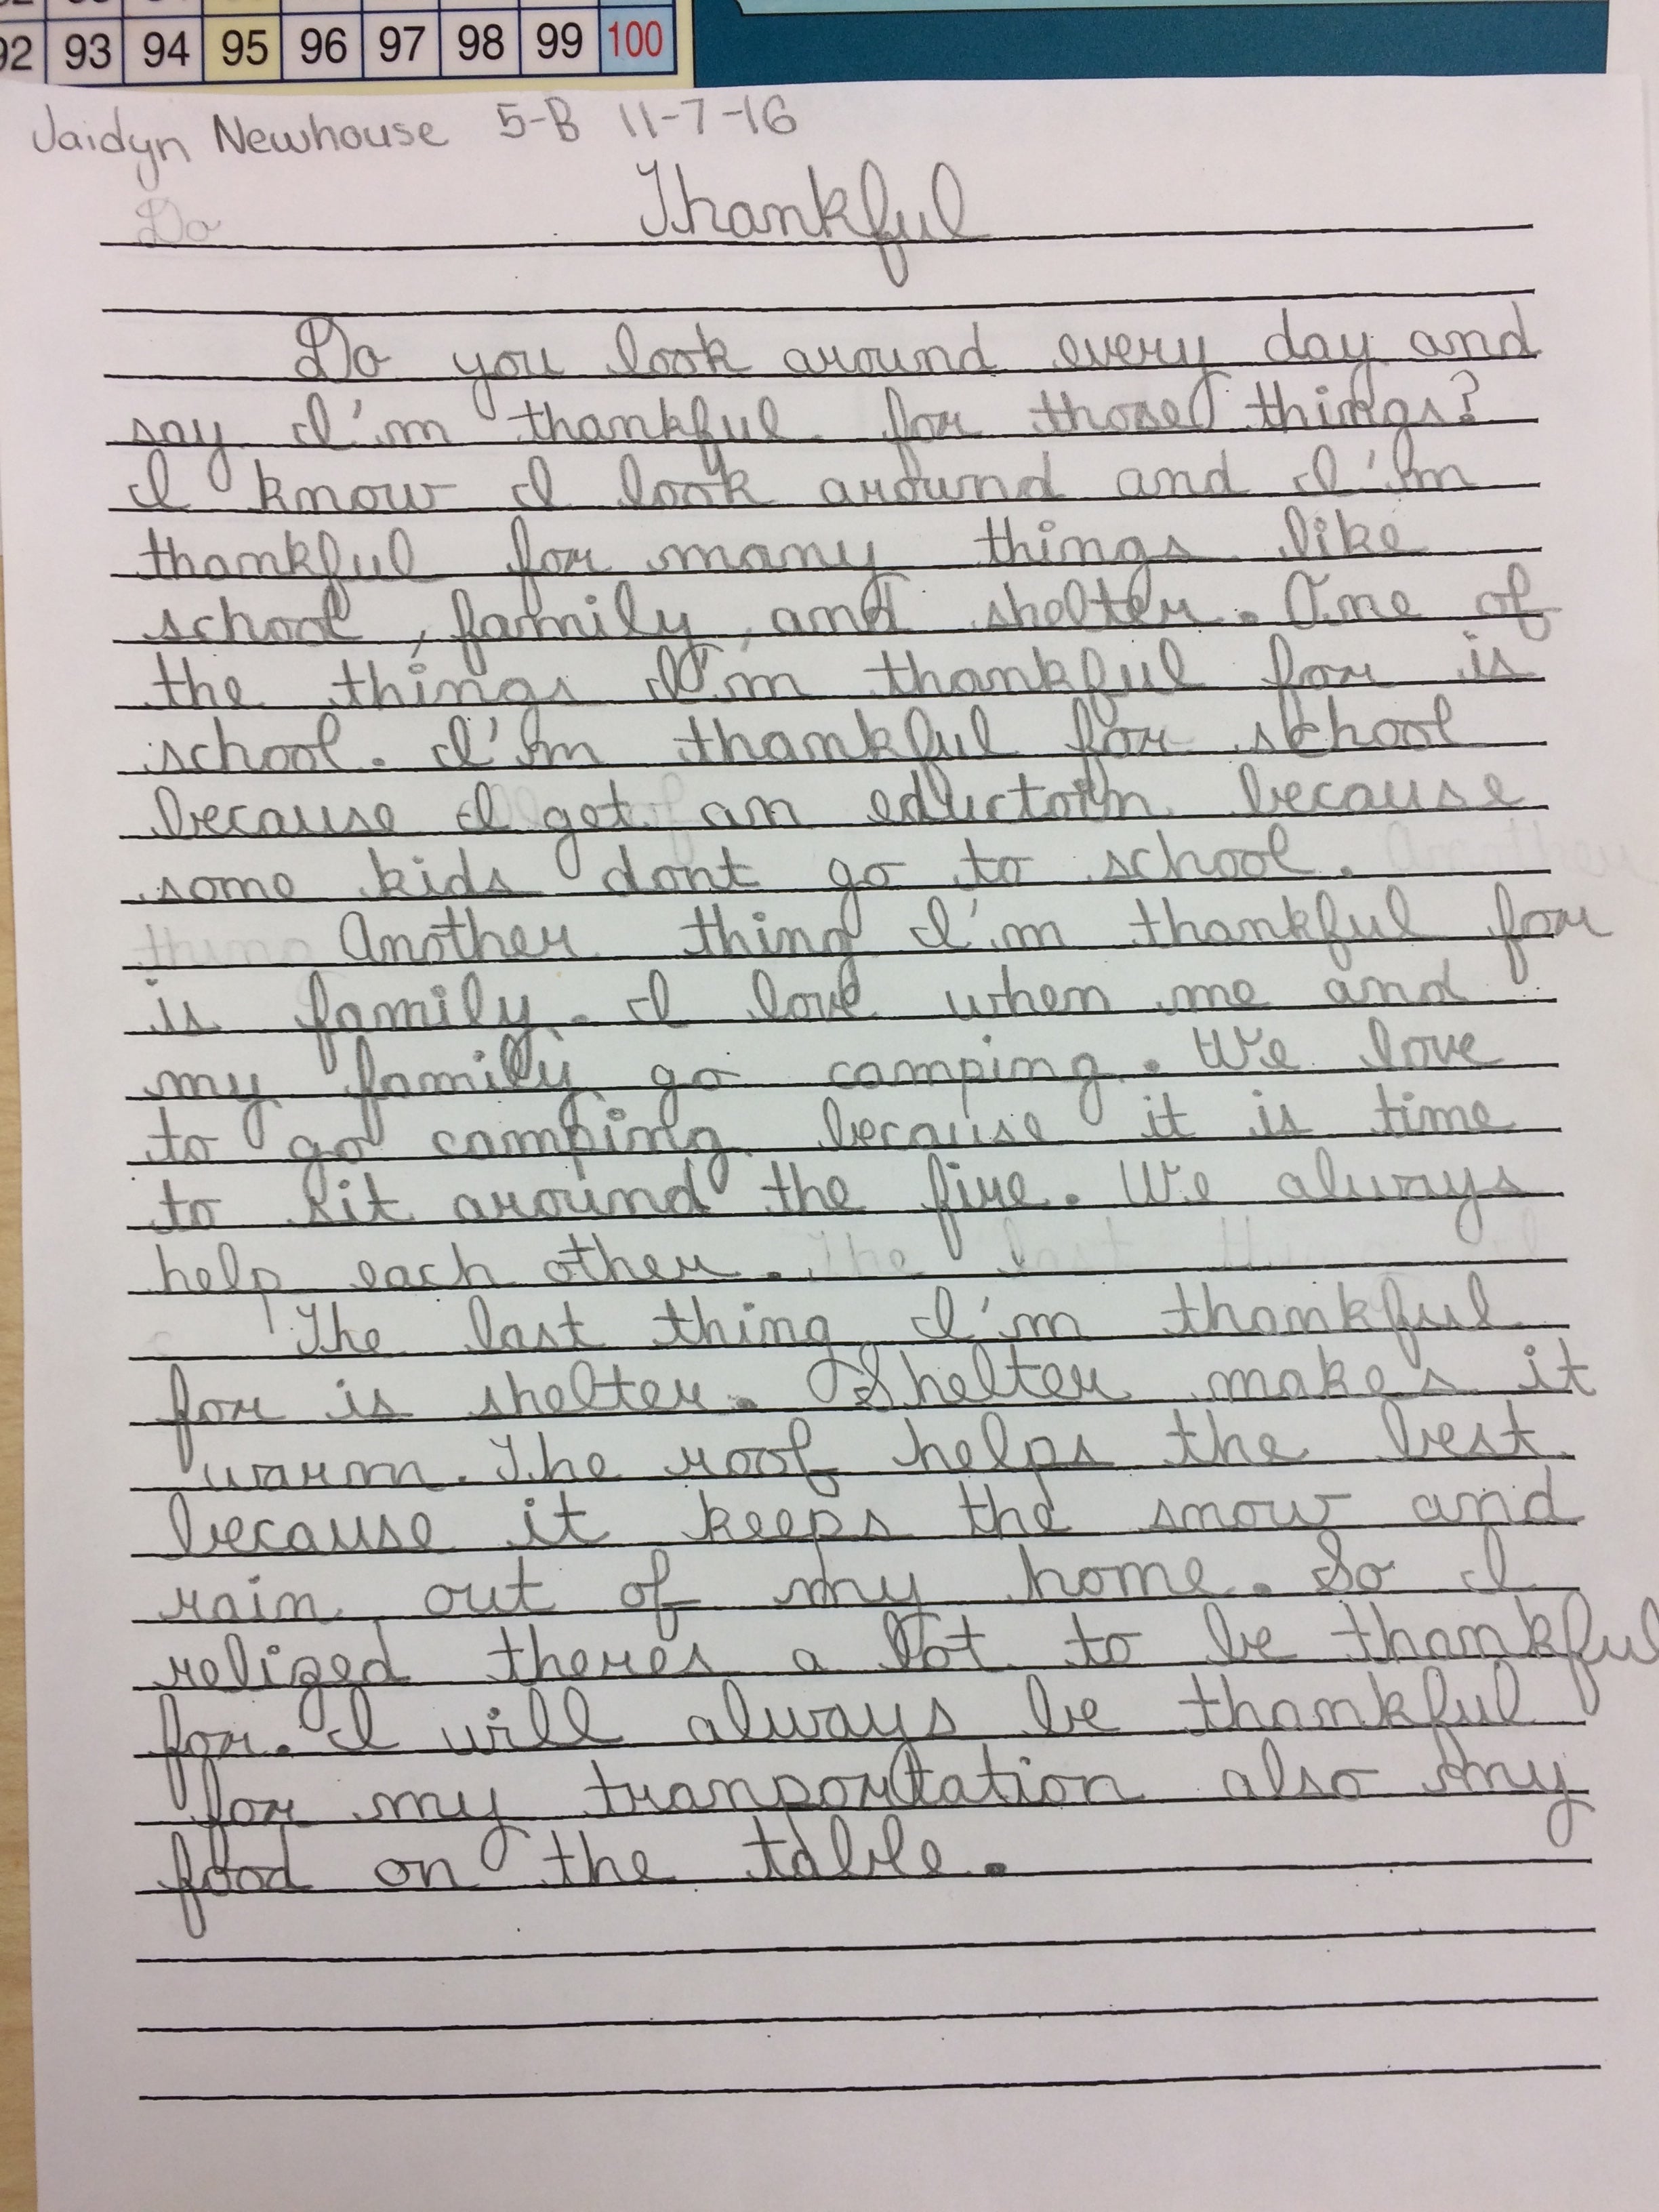 92 93 94 95 96 97 98 99 100
Jaidyn Newhouse 5-B 11-7-16
Thankful
Do
Do you look around every day and
say I'm thankful for those things?
I know I look around and I'm
thankful for many things like
school, family, and shelter. One of
the things I'm thankful for is
school. I'm thankful for school
because I get an eductoin because
some kids dont go to school.
Another thing I'm thankful for
is family. I love when me and
my family go camping. We love
to go camping because it is time
to sit around the fire. We always
help each other.
The last thing I'm thankful
for is shelter. Shelter makes it
warm. The roof helps the best
because it keeps the snow and
rain out of my home. So I
relized theres a lot to be thankful
for. I will always be thankful
for my tranportation also my
food on the table.